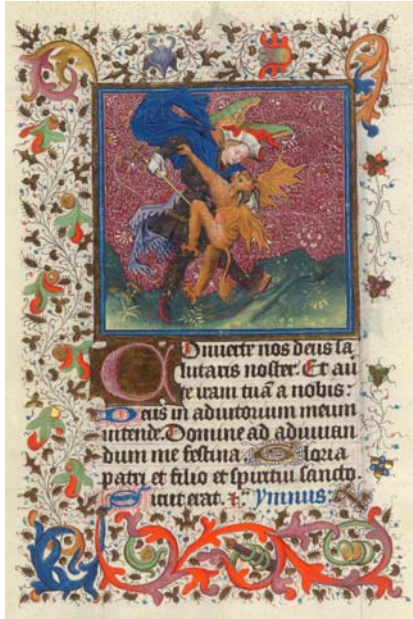 Onuerte nos deus sa
lutaris noster. Et au
te iram tuā a nobis:
Deus in adiutorium meum
intende. Domine ad adiuuan
dum me festina. Gloria
patri et filio et spiritui sancto.
Sicut erat. ymnus: